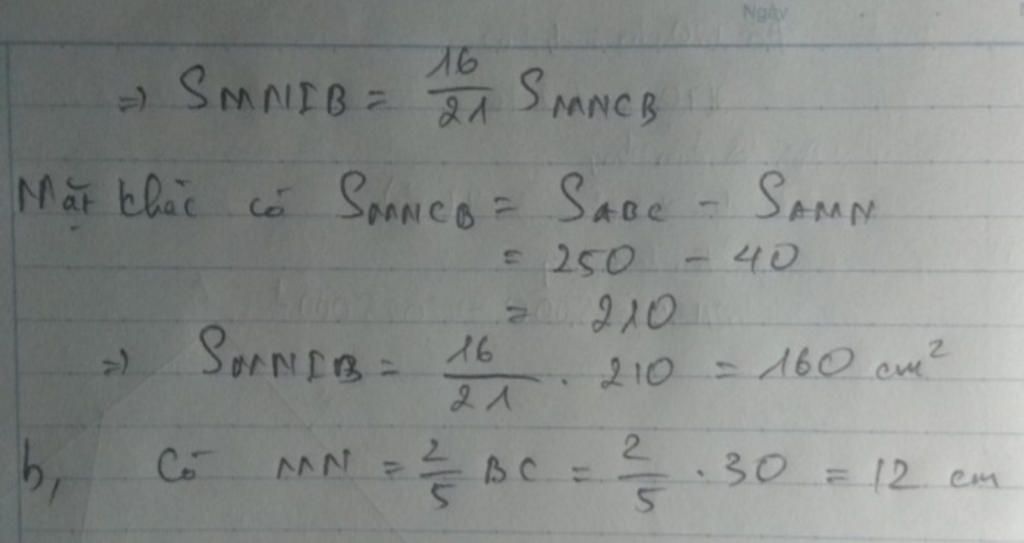 Ngày
⇒ SMNIB = 16/21 SMNCB
Mặt khác có SMNCB = SABC - SAMN
= 250 - 40
= 210
⇒ SMNIB = 16/21 . 210 = 160 cm²
b, Có MN = 2/5 BC = 2/5 . 30 = 12 cm